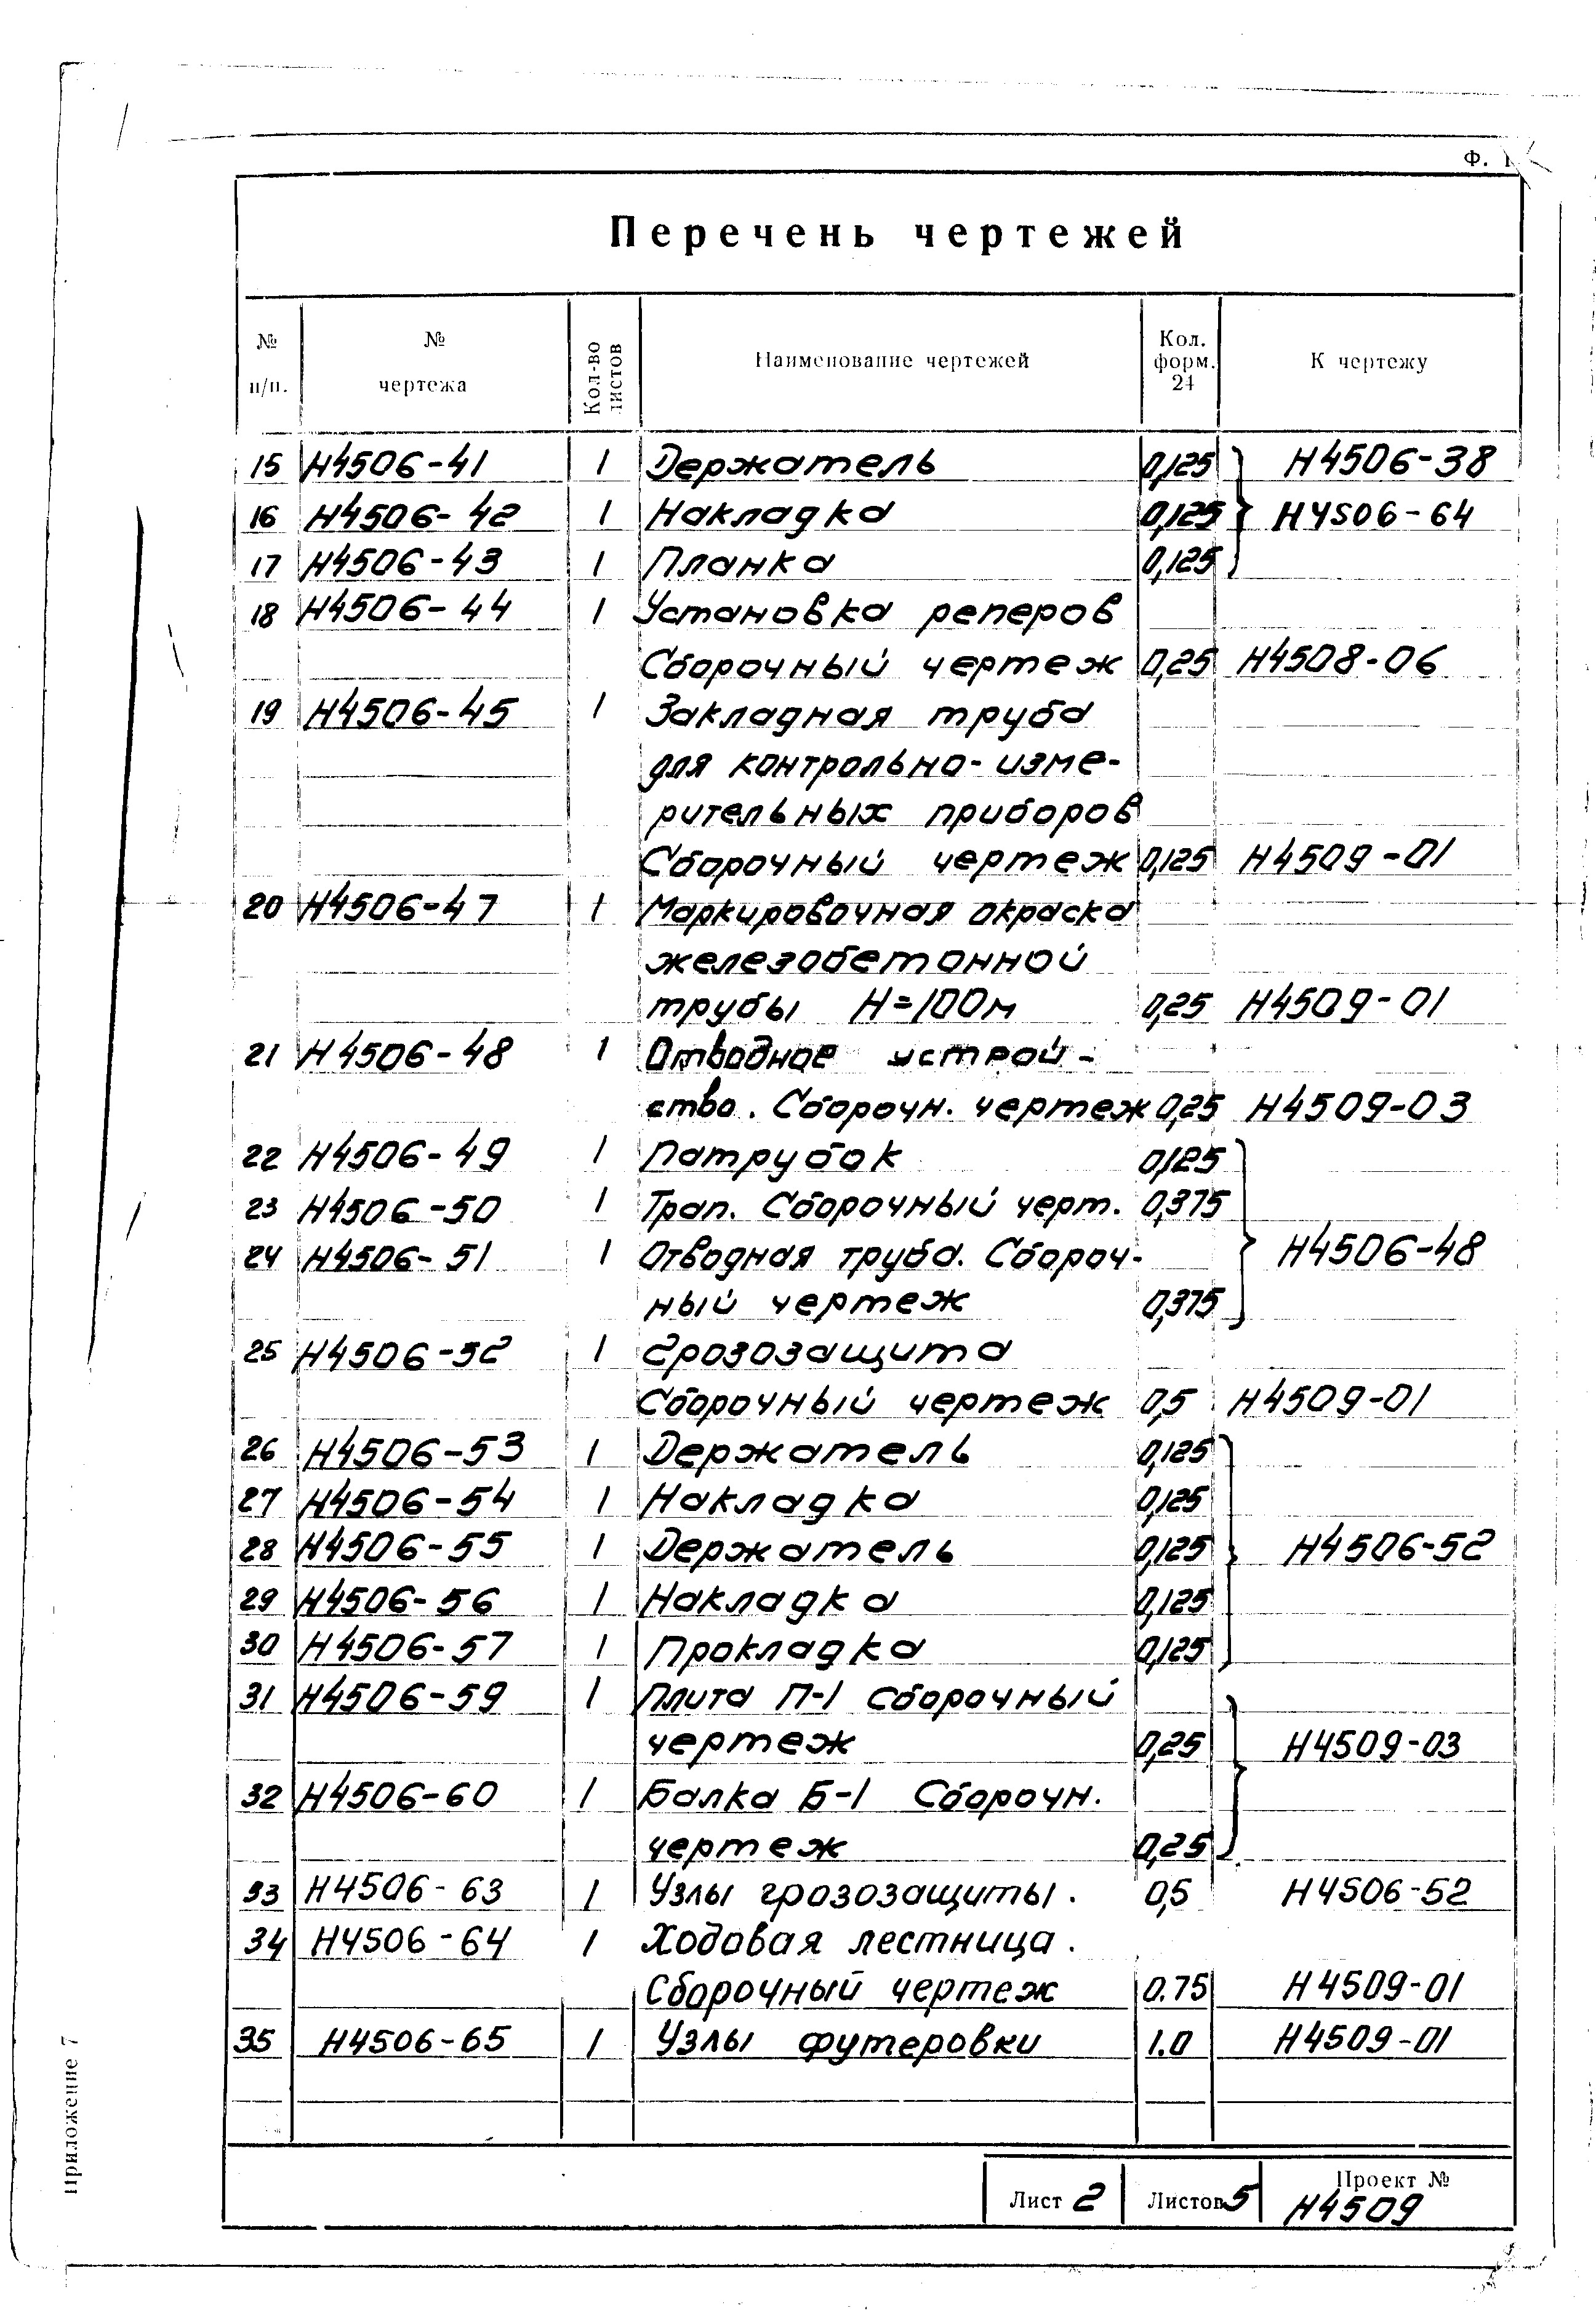 Ф. 1
Перечень чертежей
№ п/п.
№ чертежа
Кол-во листов
Наименование чертежей
Кол. форм. 24
К чертежу
15 Н4506-41 1 Держатель 0,125 Н4506-38
16 Н4506-42 1 Накладка 0,125 Н4506-64
17 Н4506-43 1 Планка 0,125
18 Н4506-44 1 Установка реперов
Сборочный чертеж 0,25 Н4508-06
19 Н4506-45 1 Закладная труба
для контрольно-изме-
рительных приборов
Сборочный чертеж 0,125 Н4509-01
20 Н4506-47 1 Маркировочная окраска
железобетонной
трубы Н=100м 0,25 Н4509-01
21 Н4506-48 1 Отводное устрой-
ство. Сборочн. чертеж 0,25 Н4509-03
22 Н4506-49 1 Патрубок 0,125
23 Н4506-50 1 Трап. Сборочный черт. 0,375
24 Н4506-51 1 Отводная труба. Сбороч- Н4506-48
ный чертеж 0,375
25 Н4506-52 1 Грозозащита
Сборочный чертеж 0,5 Н4509-01
26 Н4506-53 1 Держатель 0,125
27 Н4506-54 1 Накладка 0,125
28 Н4506-55 1 Держатель 0,125 Н4506-52
29 Н4506-56 1 Накладка 0,125
30 Н4506-57 1 Прокладка 0,125
31 Н4506-59 1 Плита П-1 Сборочный
чертеж 0,25 Н4509-03
32 Н4506-60 1 Балка Б-1 Сборочн.
чертеж 0,25
33 Н4506-63 1 Узлы грозозащиты. 0,5 Н4506-52
34 Н4506-64 1 Ходовая лестница.
Сборочный чертеж 0.75 Н4509-01
35 Н4506-65 1 Узлы футеровки 1.0 Н4509-01
Приложение 7
Лист 2 Листов 5 Проект №
Н4509